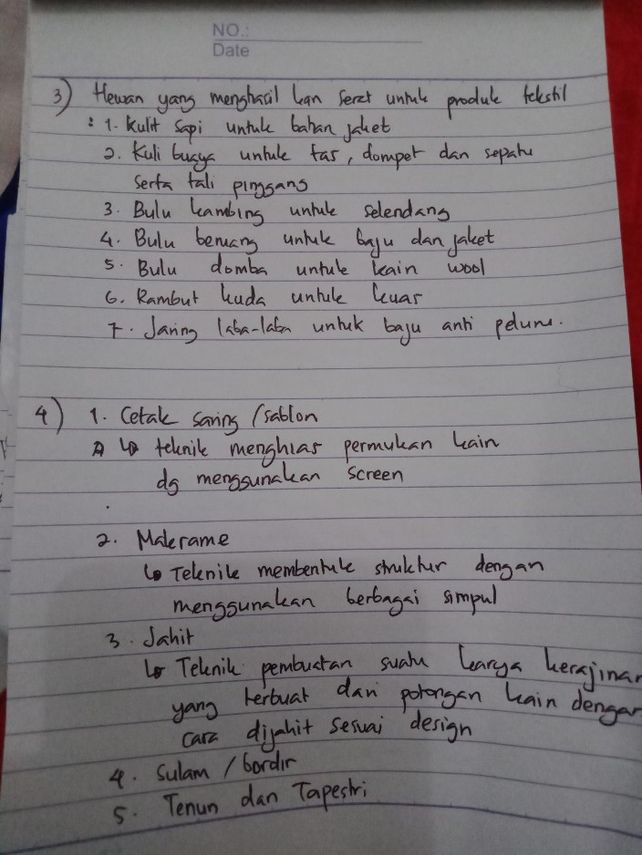 NO.:
Date
3) Hewan yang menghasil kan serat untuk produk tekstil
: 1. Kulit sapi untuk bahan jaket
2. Kuli buaya untuk tas, dompet dan sepatu
serta tali pinggang
3. Bulu kambing untuk selendang
4. Bulu beruang untuk baju dan jaket
5. Bulu domba untuk kain wool
6. Rambut kuda untuk kuas
7. Jaring laba-laba untuk baju anti peluru.
4) 1. Cetak saring /sablon
↳ teknik menghias permukan kain
dg menggunakan screen
2. Makrame
↳ Teknik membentuk struktur dengan
menggunakan berbagai simpul
3. Jahit
↳ Teknik pembuatan suatu karya kerajinan
yang terbuat dari potongan kain dengan
cara dijahit sesuai design
4. Sulam / bordir
5. Tenun dan Tapestri